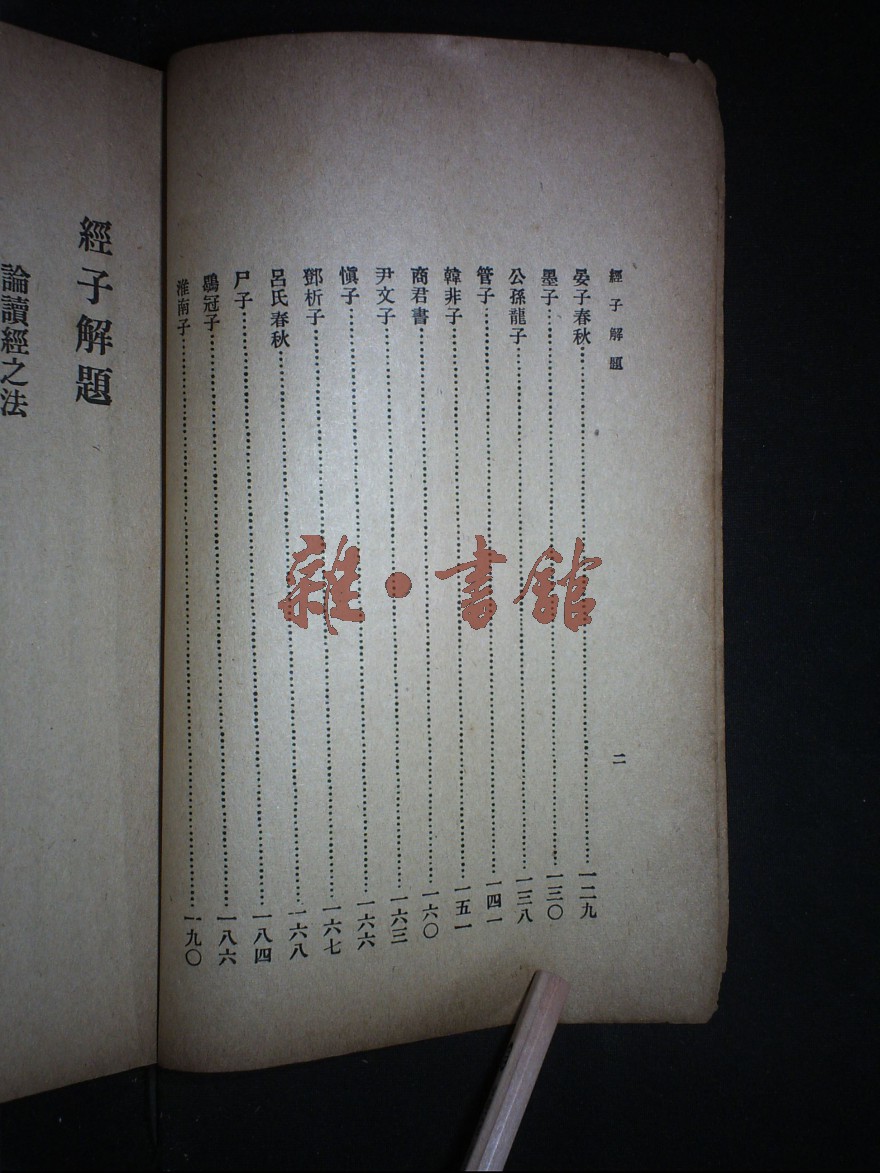 經子解題
二
晏子春秋……一二九
墨子……一三〇
公孫龍子……一三八
管子……一四一
韓非子……一五一
商君書……一六〇
尹文子……一六三
愼子……一六六
鄧析子……一六七
呂氏春秋……一六八
尸子……一八四
鶡冠子……一八六
淮南子……一九〇
經子解題
論讀經之法
雜·書館